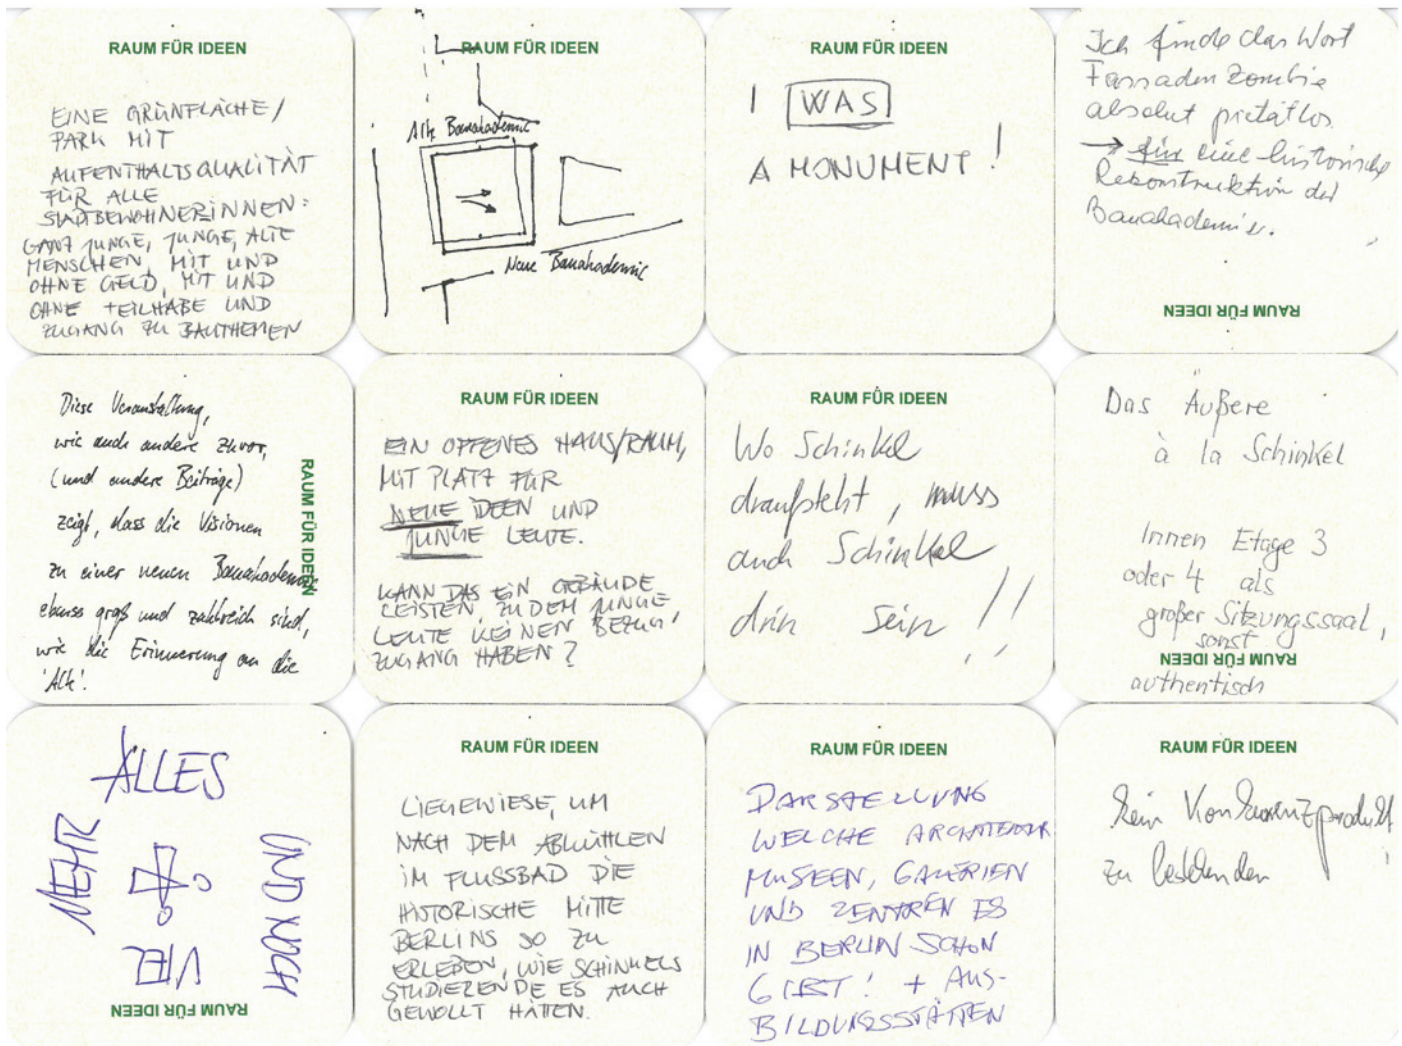 RAUM FÜR IDEEN
EINE GRÜNFLÄCHE/
PARK MIT
AUFENTHALTSQUALITÄT
FÜR ALLE
STADTBEWOHNER:INNEN:
GANZ JUNGE, JUNGE, ALTE
MENSCHEN, MIT UND
OHNE GELD, MIT UND
OHNE TEILHABE UND
ZUGANG ZU BAUTHEMEN
RAUM FÜR IDEEN
Alte Bauakademie
Neue Bauakademie
RAUM FÜR IDEEN
I WAS
A MONUMENT!
Ich finde das Wort
Fassadenzombie
absolut pietätlos
→ für eine historische
Rekonstruktion der
Bauakademie.
RAUM FÜR IDEEN
Diese Veranstaltung,
wie auch andere zuvor,
(und andere Beiträge)
zeigt, dass die Visionen
zu einer neuen Bauakademie
ebenso groß und zahlreich sind,
wie die Erinnerung an die
'Alte'.
RAUM FÜR IDEEN
RAUM FÜR IDEEN
EIN OFFENES HAUS/RAUM,
MIT PLATZ FÜR
NEUE IDEEN UND
JUNGE LEUTE.
KANN DAS EIN GEBÄUDE
LEISTEN, ZU DEM JUNGE
LEUTE KEINEN BEZUG/
ZUGANG HABEN?
RAUM FÜR IDEEN
Wo Schinkel
draufsteht, muss
auch Schinkel
drin sein!!
Das Äußere
à la Schinkel
Innen Etage 3
oder 4 als
großer Sitzungssaal,
sonst
RAUM FÜR IDEEN
authentisch
ALLES
UND NOCH
VIEL
MEHR
RAUM FÜR IDEEN
RAUM FÜR IDEEN
LIEGEWIESE, UM
NACH DEM ABKÜHLEN
IM FLUSSBAD DIE
HISTORISCHE MITTE
BERLINS SO ZU
ERLEBEN, WIE SCHINKELS
STUDIERENDE ES AUCH
GEWOLLT HÄTTEN.
RAUM FÜR IDEEN
DARSTELLUNG
WELCHE ARCHITEKTUR
MUSEEN, GALERIEN
UND ZENTREN ES
IN BERLIN SCHON
GIBT! + AUS-
BILDUNGSSTÄTTEN
RAUM FÜR IDEEN
Kein Konkurrenzprodukt
zu bestehenden!